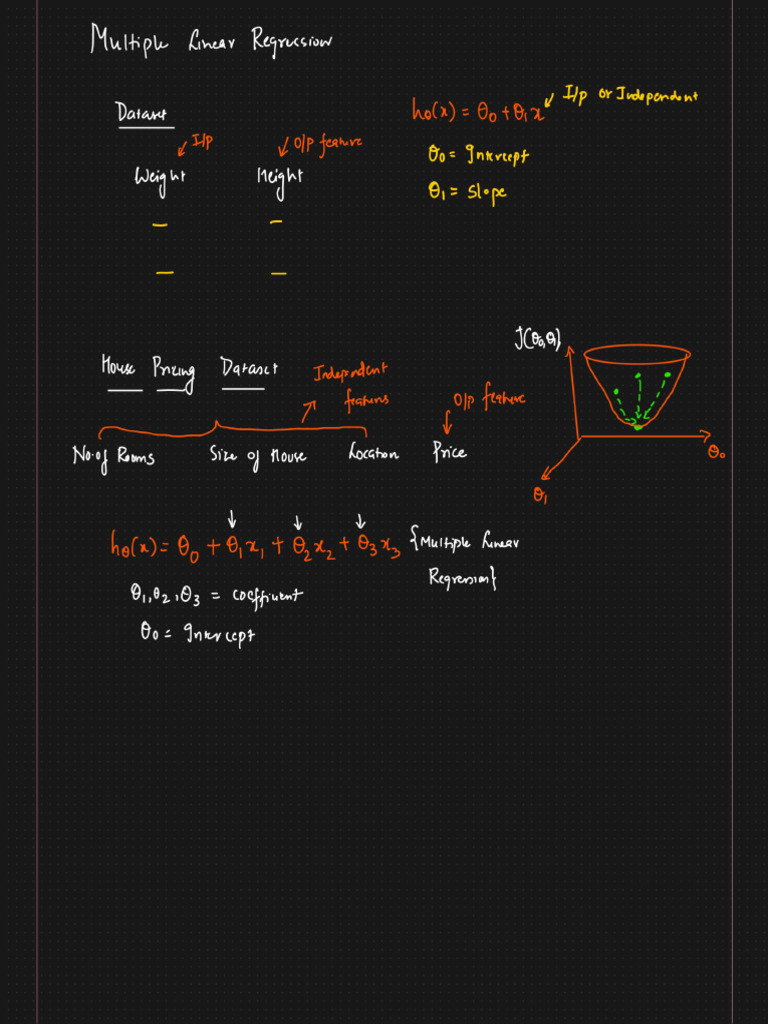 Multiple Linear Regression
Dataset
I/p
O/p feature
Weight Height
hθ(x) = θ0 + θ1x
I/p or Independent
θ0 = Intercept
θ1 = Slope
House Pricing Dataset
Independent
features
O/p feature
No. of Rooms Size of House Location Price
J(θ0,θ1)
θ0
θ1
hθ(x) = θ0 + θ1x1 + θ2x2 + θ3x3 {Multiple Linear
Regression}
θ1, θ2, θ3 = coefficient
θ0 = Intercept